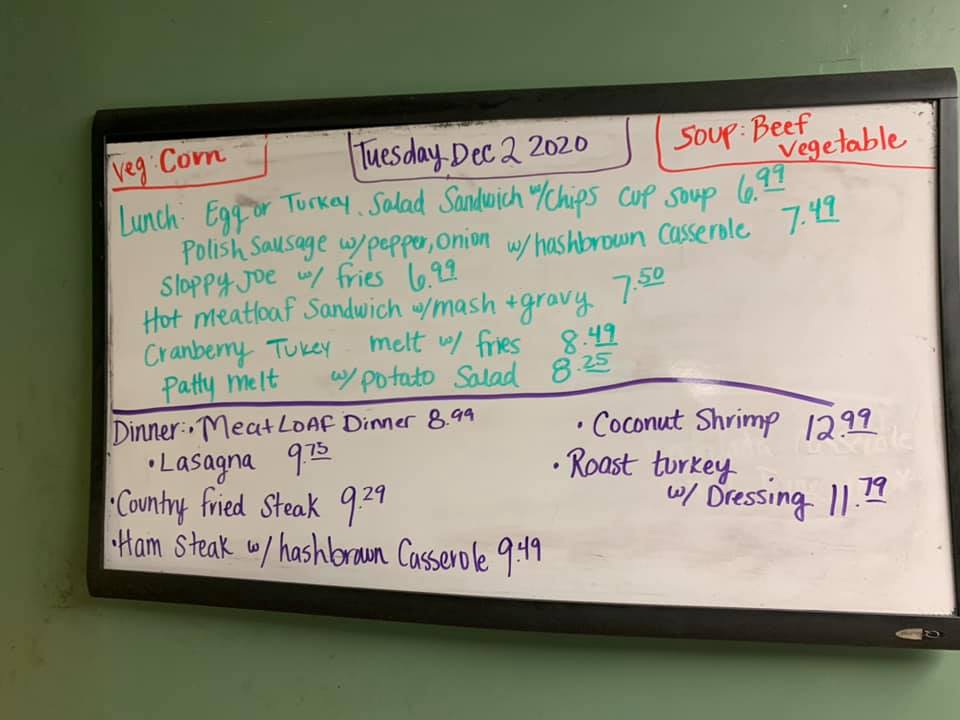 Veg: Corn
Tuesday Dec 2 2020
Soup: Beef
vegetable
Lunch: Egg or Turkey Salad Sandwich w/chips cup soup 6.99
Polish Sausage w/pepper, onion w/hashbrown Casserole 7.49
Sloppy Joe w/ fries 6.99
Hot meatloaf Sandwich w/mash + gravy 7.50
Cranberry Tukey melt w/ fries 8.49
Patty melt w/potato Salad 8.25
Dinner: • Meat Loaf Dinner 8.99
• Lasagna 9.75
• Country fried Steak 9.29
• Ham Steak w/hashbrown Casserole 9.49
• Coconut Shrimp 12.99
• Roast turkey
w/ Dressing 11.79